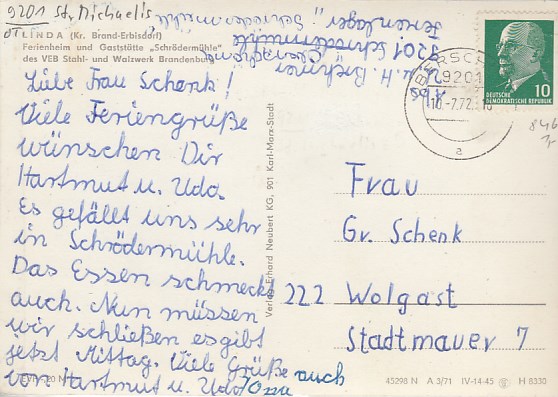 9201 St. Michaelis
LINDA (Kr. Brand-Erbisdorf)
Ferienheim und Gaststätte „Schrödermühle"
des VEB Stahl- und Walzwerk Brandenburg
Liebe Frau Schenk!
Viele Feriengrüße
wünschen Dir
Hartmut u. Udo.
Es gefällt uns sehr
in Schrödermühle.
Das Essen schmeckt
auch. Nun müssen
wir schließen es gibt
jetzt Mittag. Viele Grüße auch
von Hartmut u. Udo
Verlag Erhard Neubert KG, 901 Karl-Marx-Stadt
Abs.
H.
u.
9201 Schrödermühle
Ferienlager „Schrödermühle"
9201
10.-7.72
a
10
DEUTSCHE
DEMOKRATISCHE REPUBLIK
Frau
Gr. Schenk
222 Wolgast
Stadtmauer 7
45298 N A 3/71 IV-14-45 H 8330